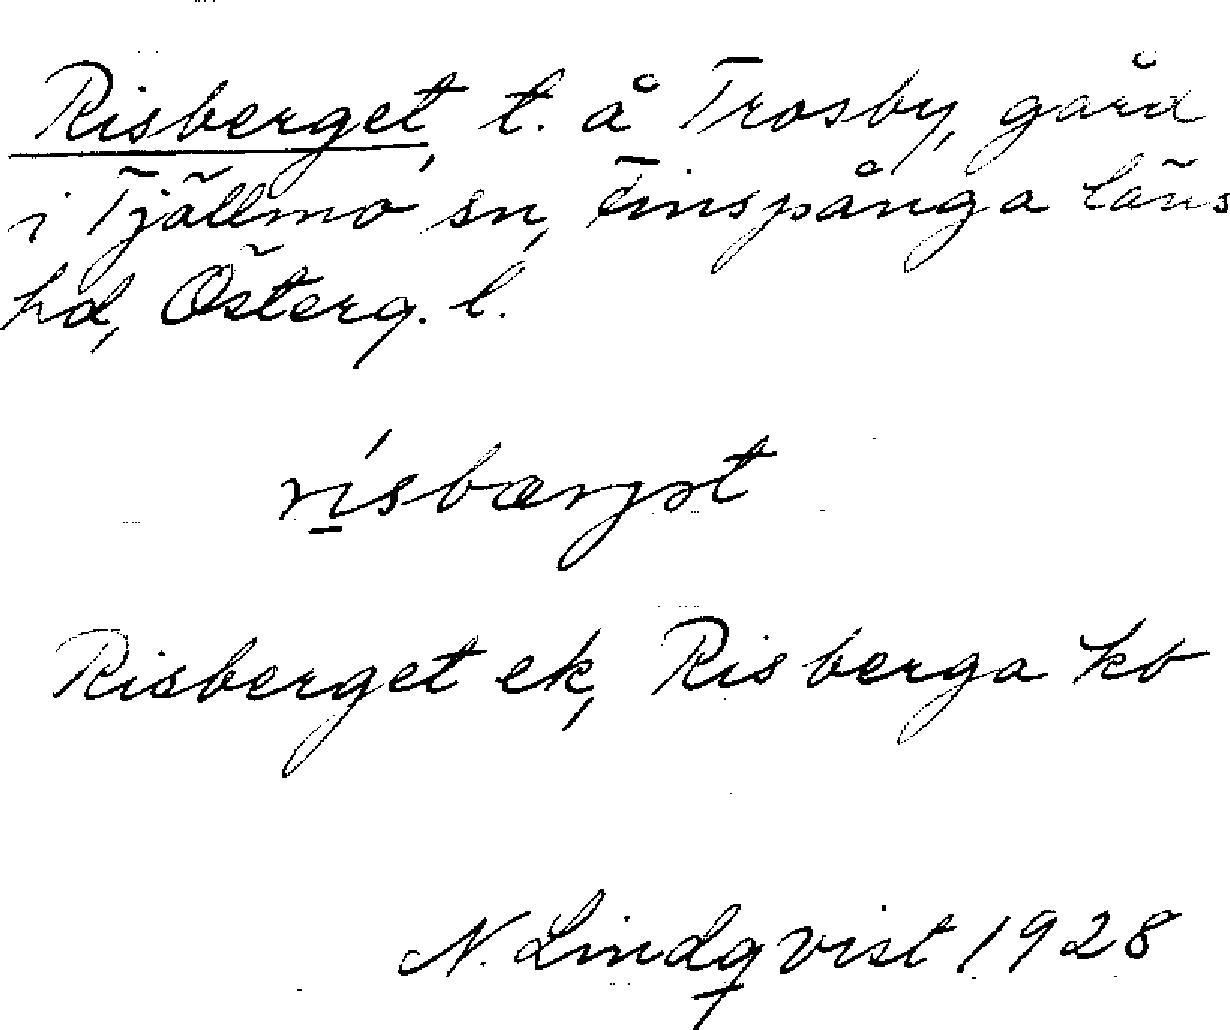 Risberget, t. å Trosby, gård
i Tjällmo sn, Finspånga läns
hd, Österg. l.
Risberget ek, Risberga kb
N. Lindqvist 1928